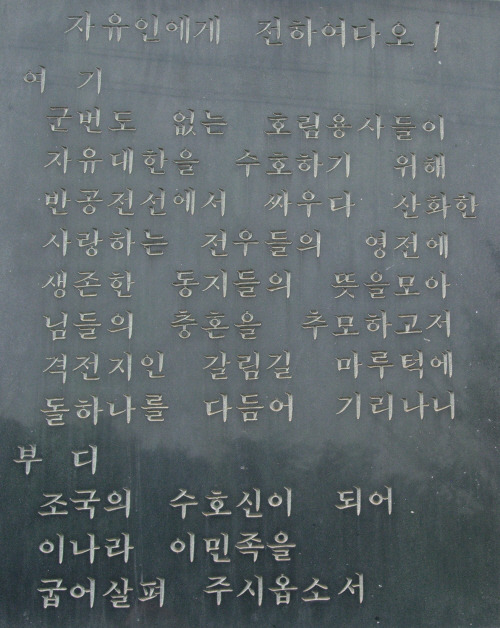 자유인에게 전하여다오!
여 기
군번도 없는 호림용사들이
자유대한을 수호하기 위해
반공전선에서 싸우다 산화한
사랑하는 전우들의 영전에
생존한 동지들의 뜻을모아
님들의 충혼을 추모하고저
격전지인 갈림길 마루턱에
돌하나를 다듬어 기리나니
부 디
조국의 수호신이 되어
이나라 이민족을
굽어살펴 주시옵소서